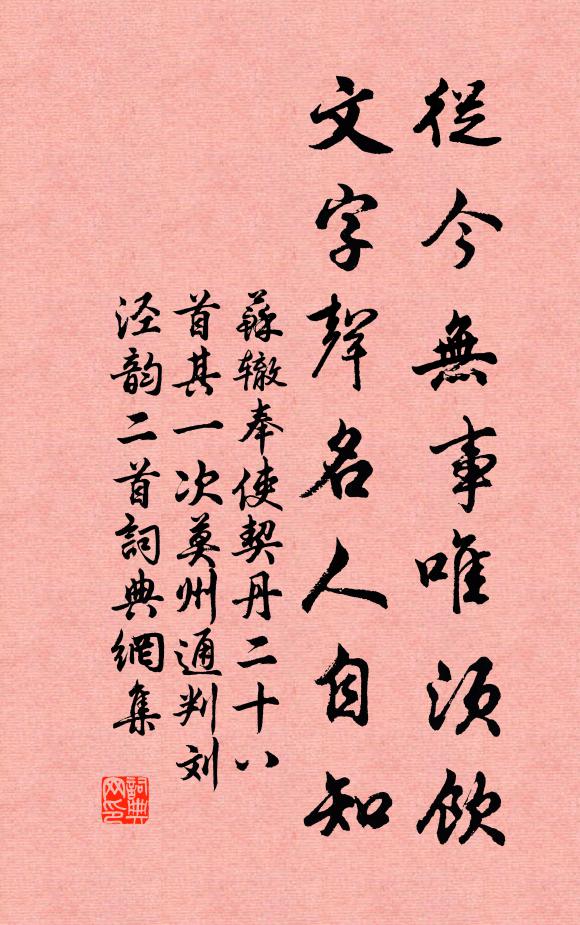 從今無事唯須飲
文字聲名人自知
蘇辙奉使契丹二十八
首其一次莫州通判刘
泾韵二首詞典網集
詞典
网印